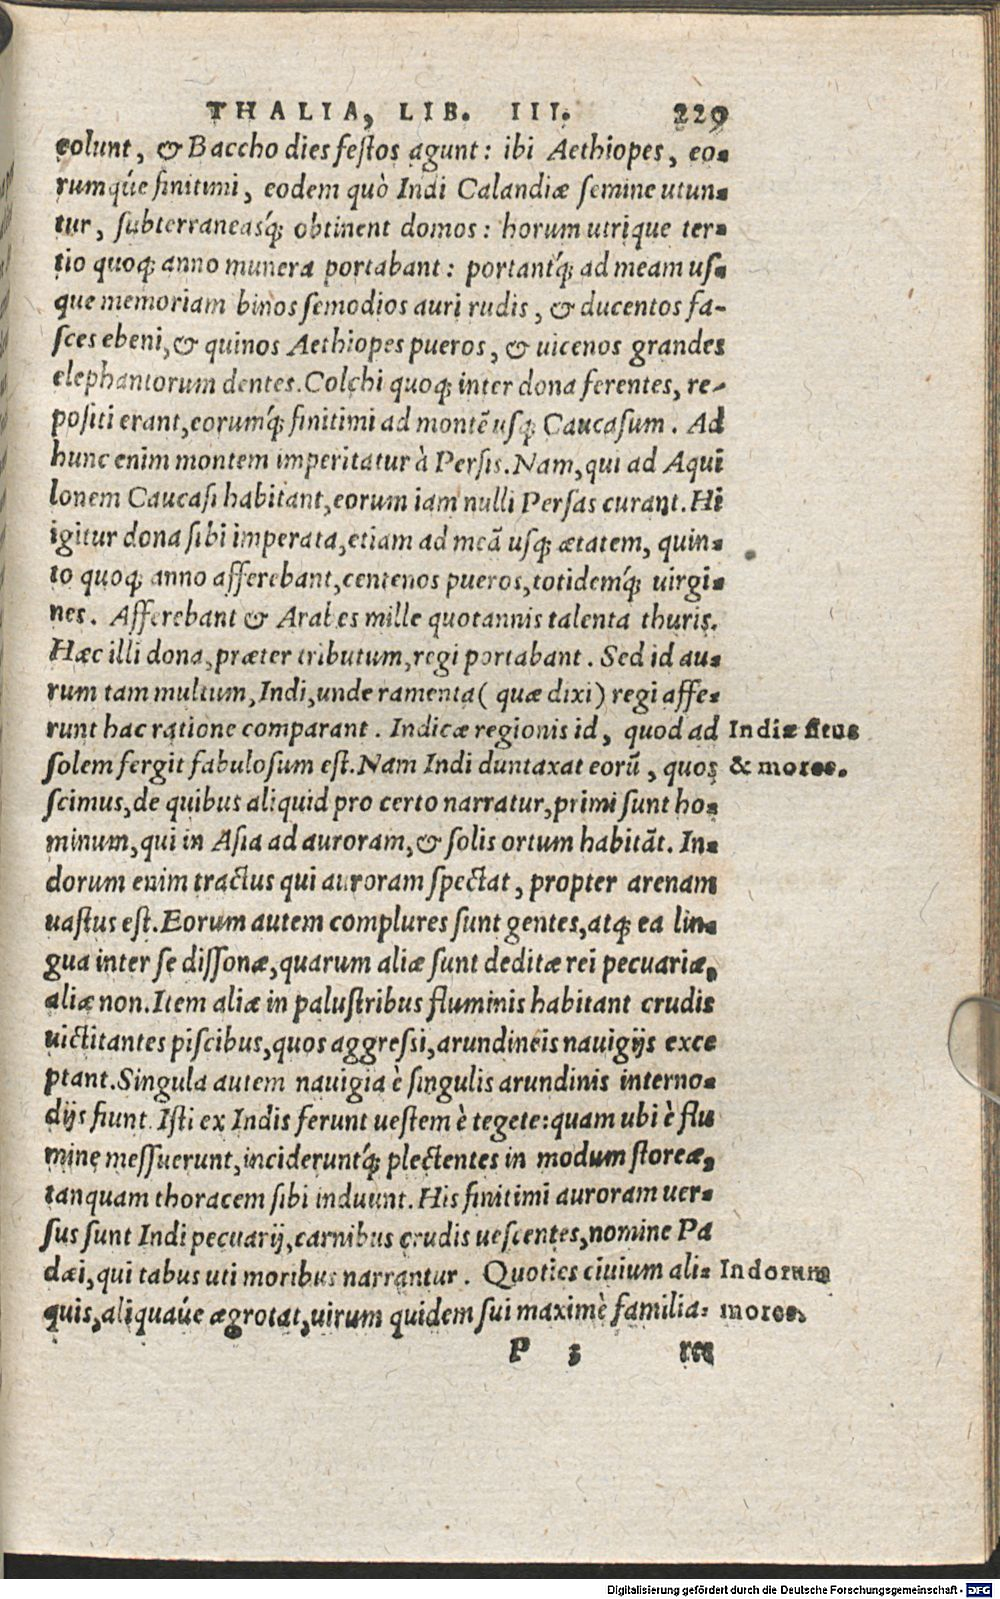 THALIA, LIB. III. 229
colunt, & Baccho dies festos agunt: ibi Aethiopes, eo-
rumq́ue finitimi, eodem quò Indi Calandiæ semine utun-
tur, subterraneasq́; obtinent domos: horum utrique ter-
tio quoq; anno munera portabant: portantq́; ad meam us-
que memoriam binos semodios auri rudis, & ducentos fa-
sces ebeni, & quinos Aethiopes pueros, & uicenos grandes
elephantorum dentes. Colchi quoq; inter dona ferentes, re-
positi erant, eorumq́; finitimi ad montē usq; Caucasum. Ad
hunc enim montem imperitatur à Persis. Nam, qui ad Aqui
lonem Caucasi habitant, eorum iam nulli Persas curant. Hi
igitur dona sibi imperata, etiam ad meā usq; ætatem, quin-
to quoq; anno afferebant, centenos pueros, totidemq́; uirgi-
nes. Afferebant & Arabes mille quotannis talenta thuris.
Hæc illi dona, præter tributum, regi portabant. Sed id au-
rum tam multum, Indi, unde ramenta ( quæ dixi ) regi affe-
runt hac ratione comparant. Indicæ regionis id, quod ad Indiæ situs
solem fergit fabulosum est. Nam Indi duntaxat eorū, quos & mores.
scimus, de quibus aliquid pro certo narratur, primi sunt ho-
minum, qui in Asia ad auroram, & solis ortum habitāt. In-
dorum enim tractus qui auroram spectat, propter arenam
uastus est. Eorum autem complures sunt gentes, atq; ea lin-
gua inter se dissonæ, quarum aliæ sunt deditæ rei pecuariæ,
aliæ non. Item aliæ in palustribus fluminis habitant crudis
uictitantes piscibus, quos aggressi, arundineis nauigijs exce
ptant. Singula autem nauigia è singulis arundinis interno-
dijs fiunt. Isti ex Indis ferunt uestem è tegete: quam ubi è flu
mine messuerunt, incideruntq́; plectentes in modum storeæ,
tanquam thoracem sibi induunt. His finitimi auroram uer-
sus sunt Indi pecuarij, carnibus crudis uescentes, nomine Pa
dæi, qui tabus uti moribus narrantur. Quoties ciuium ali- Indorum
quis, aliquaúe ægrotat, uirum quidem sui maximè familia- mores.
P 3 res
Digitalisierung gefördert durch die Deutsche Forschungsgemeinschaft - DFG